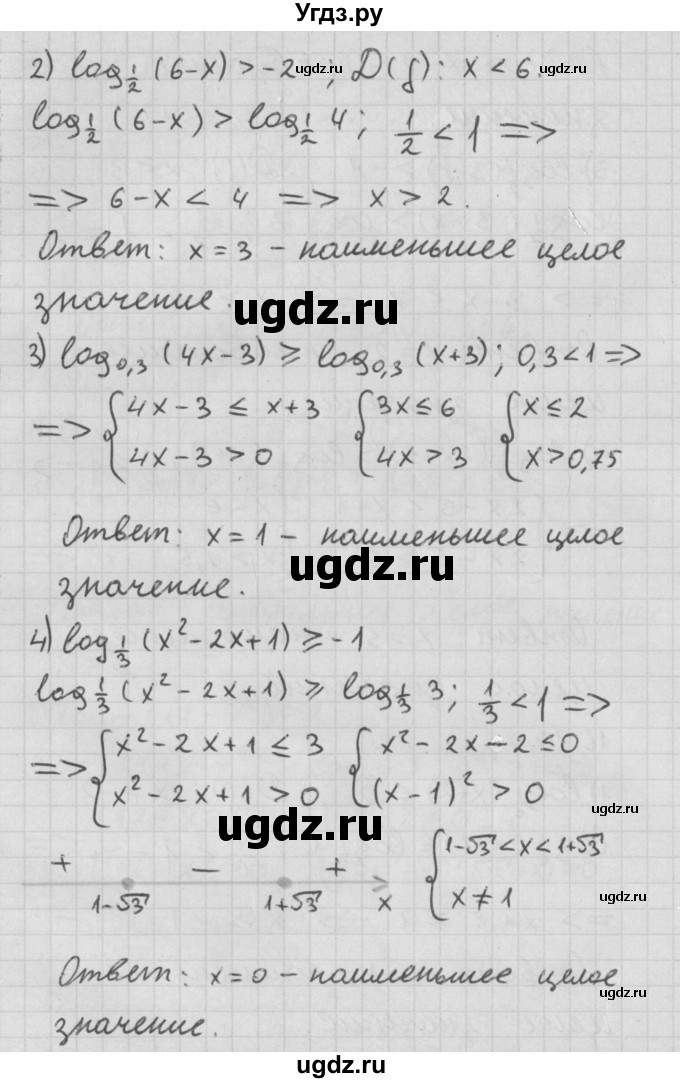 Угдз.ру
2) log_{1/2} (6-x) > -2 ugdz.ru ; D(f): x < 6. ugdz.ru
log_{1/2} (6-x) > log_{1/2} 4 ; 1/2 < 1 =>
=> 6-x < 4 => x > 2.
Ответ: x = 3 – наименьшее целое
значение.
ugdz.ru
3) log_{0,3} (4x-3) ≥ log_{0,3} (x+3); 0,3<1 =>
=> {4x-3 ≤ x+3 {3x ≤ 6 {x ≤ 2
{4x-3 > 0 {4x > 3 {x > 0,75
Ответ: x = 1 – наименьшее целое
ugdz.ru
значение.
4) log_{1/3} (x²-2x+1) ≥ -1
log_{1/3} (x²-2x+1) ≥ log_{1/3} 3 ; 1/3 < 1 =>
=> {x²-2x+1 ≤ 3 {x²-2x-2 ≤ 0
{x²-2x+1 > 0 {(x-1)² > 0
ugdz.ru
ugdz.ru
+ – + {1-√3 < x < 1+√3
1-√3 1+√3 x {x ≠ 1
ugdz.ru
Ответ: x = 0 – наименьшее целое
ugdz.ru
значение.
ugdz.ru